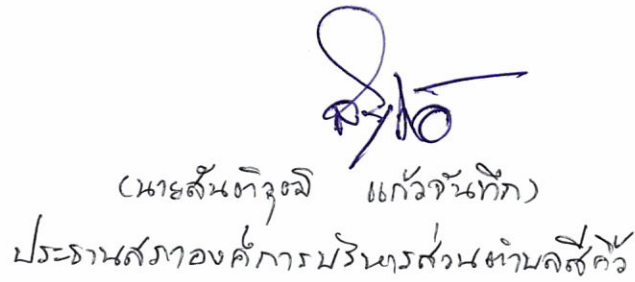 (นายสันติวุฒิ แก้วจันทึก)
ประธานสภาองค์การบริหารส่วนตำบลสีคิ้ว